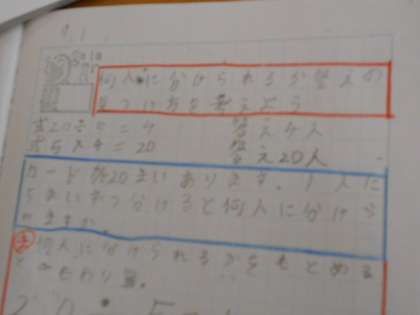 9.1
5/10
何人に分けられるか答えの
見つけ方を考えよう
式20÷5=4 答え4人
式5×4=20 答え20人
カードが20まいあります。1人に
5まいずつ分けると何人に分けら
れますか。
何人に分けられるかをもとめる
わり算。
20÷5